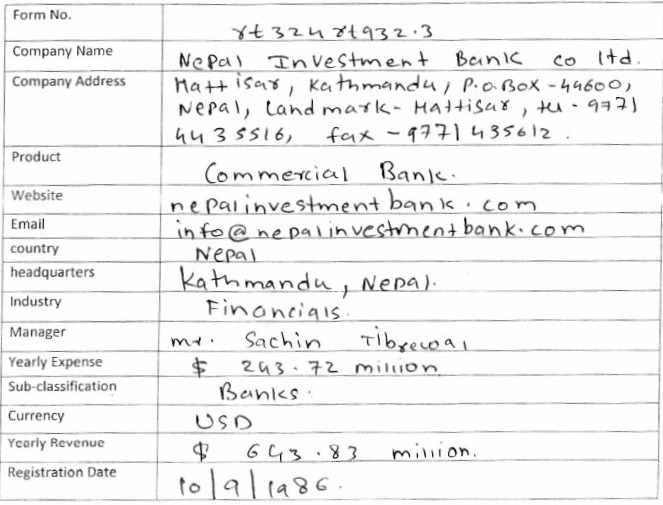 Form No. rt324rt932.3
Company Name Nepal Investment Bank co ltd.
Company Address Hattisar, Kathmandu, P.O.Box - 44600,
Nepal, Landmark - Hattisar, tel - 9771
4435516, fax - 9771435612.
Product Commercial Bank.
Website nepalinvestmentbank.com
Email info@nepalinvestmentbank.com
country Nepal
headquarters Kathmandu, Nepal.
Industry Financials.
Manager mr. Sachin Tibrewal
Yearly Expense $ 243.72 million
Sub-classification Banks.
Currency USD
Yearly Revenue $ 643.83 million.
Registration Date 10/9/1986.